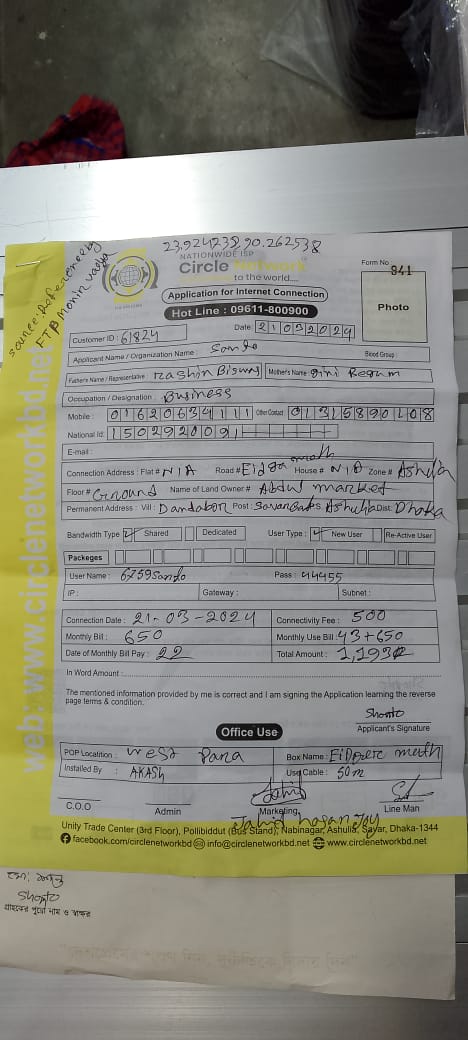 23.924238,90.262538
NATIONWIDE ISP
Circle Network
to the world....
source: Reference by
FTP Monin
Application for Internet Connection
Hot Line : 09611-800900
Form No
941
Photo
Customer ID : 61824
Date 21032024
Applicant Name / Organization Name : Santo
Blood Group :
Father's Name / Representative : Rashin Biswas Mother's Name : Gini Begum
Occupation / Designation : Business
Mobile : 01620634111 Other Contact 01315890408
National Id : 1502920091
E-mail :
Connection Address : Flat # N/A Road # Eidga math House # N/A Zone # Ashulia
Floor # Ground Name of Land Owner # Abdul market
Permanent Address : Vill : Dandabor Post : PS Ashulia Dist: Dhaka
Bandwidth Type Shared Dedicated User Type : New User Re-Active User
Packeges
User Name : 6759Santo Pass : 44455
IP : Gateway : Subnet :
Connection Date : 21-03-2024 Connectivity Fee : 500
Monthly Bill : 650 Monthly Use Bill : 43+650
Date of Monthly Bill Pay : 22 Total Amount : 1,193
In Word Amount :
The mentioned information provided by me is correct and I am signing the Application learning the reverse
page terms & condition.
Shonto
Applicant's Signature
Office Use
POP Locatition : West Para Box Name : math
Installed By : AKASH Use Cable : 50m
C.O.O Admin Marketing Line Man
Jahid hasan Joy
Unity Trade Center (3rd Floor), Pollibiddut (Bus Stand), Nabinagar, Ashulia, Savar, Dhaka-1344
facebook.com/circlenetworkbd info@circlenetworkbd.net www.circlenetworkbd.net
web: www.circlenetworkbd.net
Shonto
গ্রাহকের পুরো নাম ও স্বাক্ষর